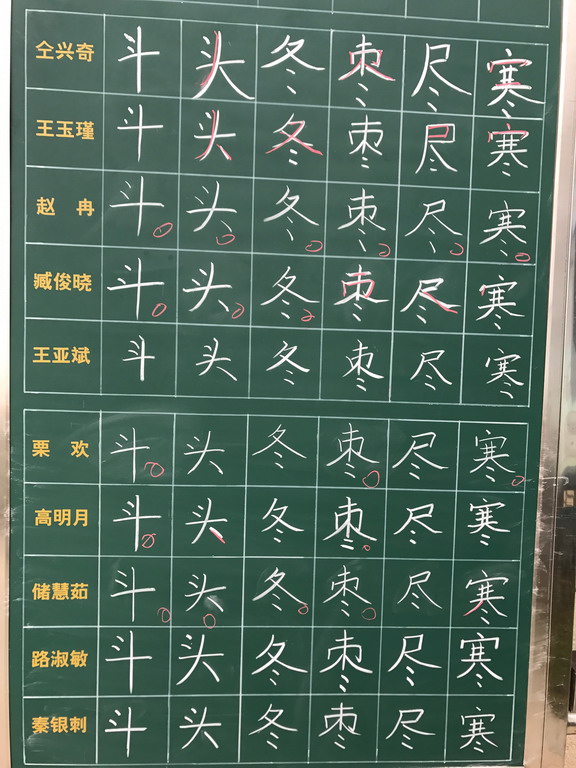 仝兴奇 斗 头 冬 枣 尽 寒
王玉瑾 斗 头 冬 枣 尽 寒
赵 冉 斗 头 冬 枣 尽 寒
臧俊晓 斗 头 冬 枣 尽 寒
王亚斌 斗 头 冬 枣 尽 寒
栗 欢 斗 头 冬 枣 尽 寒
高明月 斗 头 冬 枣 尽 寒
储慧茹 斗 头 冬 枣 尽 寒
路淑敏 斗 头 冬 枣 尽 寒
秦银刺 斗 头 冬 枣 尽 寒